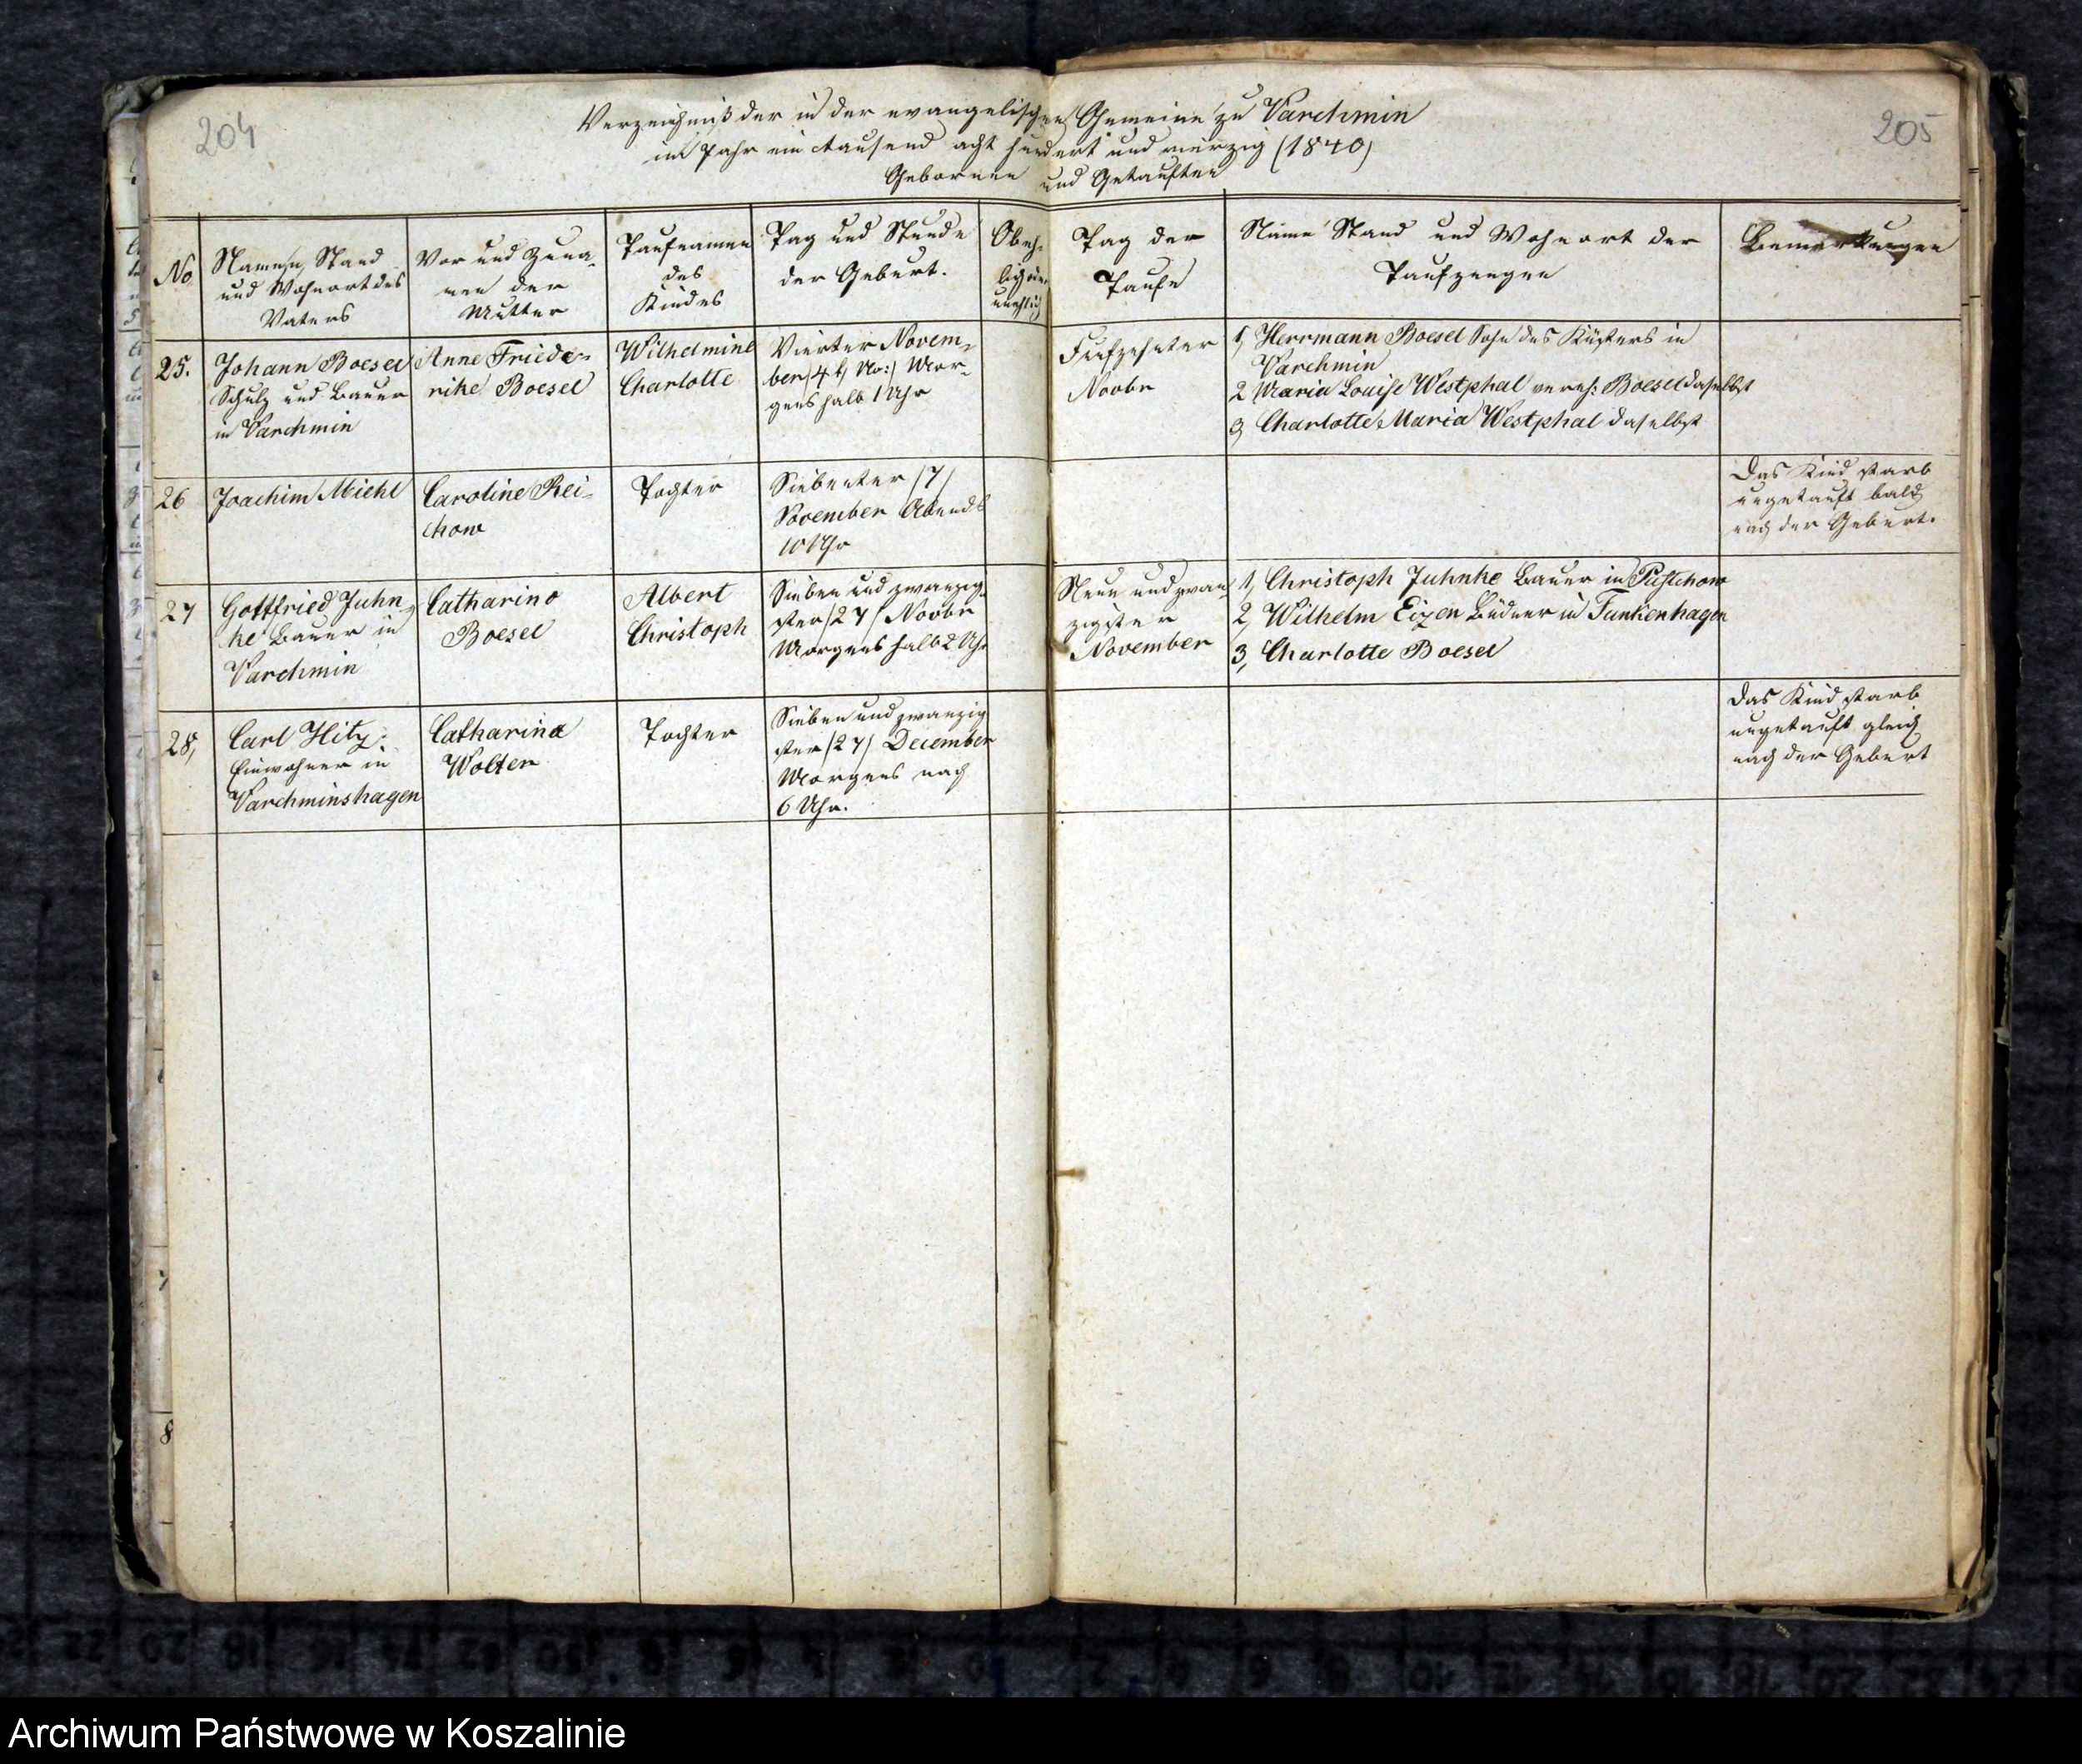 204
205
Verzeichniß der in der evangelischen Gemeine zu Varchmin
im Jahr ein tausend acht hundert und vierzig (1840)
Gebornen und Getauften
No
Namen, Stand
und Wohnort des
Vaters
Vor und Zuna-
men der
Mutter
Taufnamen
des
Kindes
Tag und Stunde
der Geburt.
Ob eh-
lich oder
unehlich
Tag der
Taufe
Name Stand und Wohnort der
Taufzeugen
Bemerkungen
25.
Johann Boesel
Schulz und Bauer
in Varchmin
Anne Friede-
rike Boesel
Wilhelmine
Charlotte
Vierter Novem-
ber Mor-
gens halb 1 Uhr
Funfzehnter
Novbr
1, Herrmann Boesel Sohn des Küsters in
Varchmin
2 Maria Louise Westphal vereh: Boesel daselbst
3 Charlotte Maria Westphal daselbst
26
Joachim Miehl
Caroline Rei-
chow
Tochter
Siebenter /7/
November Abends
10 Uhr
Das Kind starb
ungetauft bald
nach der Geburt.
27
Gottfried Juhn-
ke Bauer in
Varchmin
Catharina
Boesel
Albert
Christoph
Sieben und zwanzig-
ster /27/ Novbr
Morgens halb 2 Uhr
Neun und zwan-
zigster
November
1, Christoph Juhnke Bauer in Pustchow
2, Wilhelm Eizen Büdner in Funkenhagen
3, Charlotte Boesel
28,
Carl Hitz
Einwohner in
Varchminshagen
Catharina
Wolter
Tochter
Sieben und zwanzig
ster /27/ December
Morgens nach
6 Uhr.
Das Kind starb
ungetauft gleich
nach der Geburt
8
Archiwum Państwowe w Koszalinie